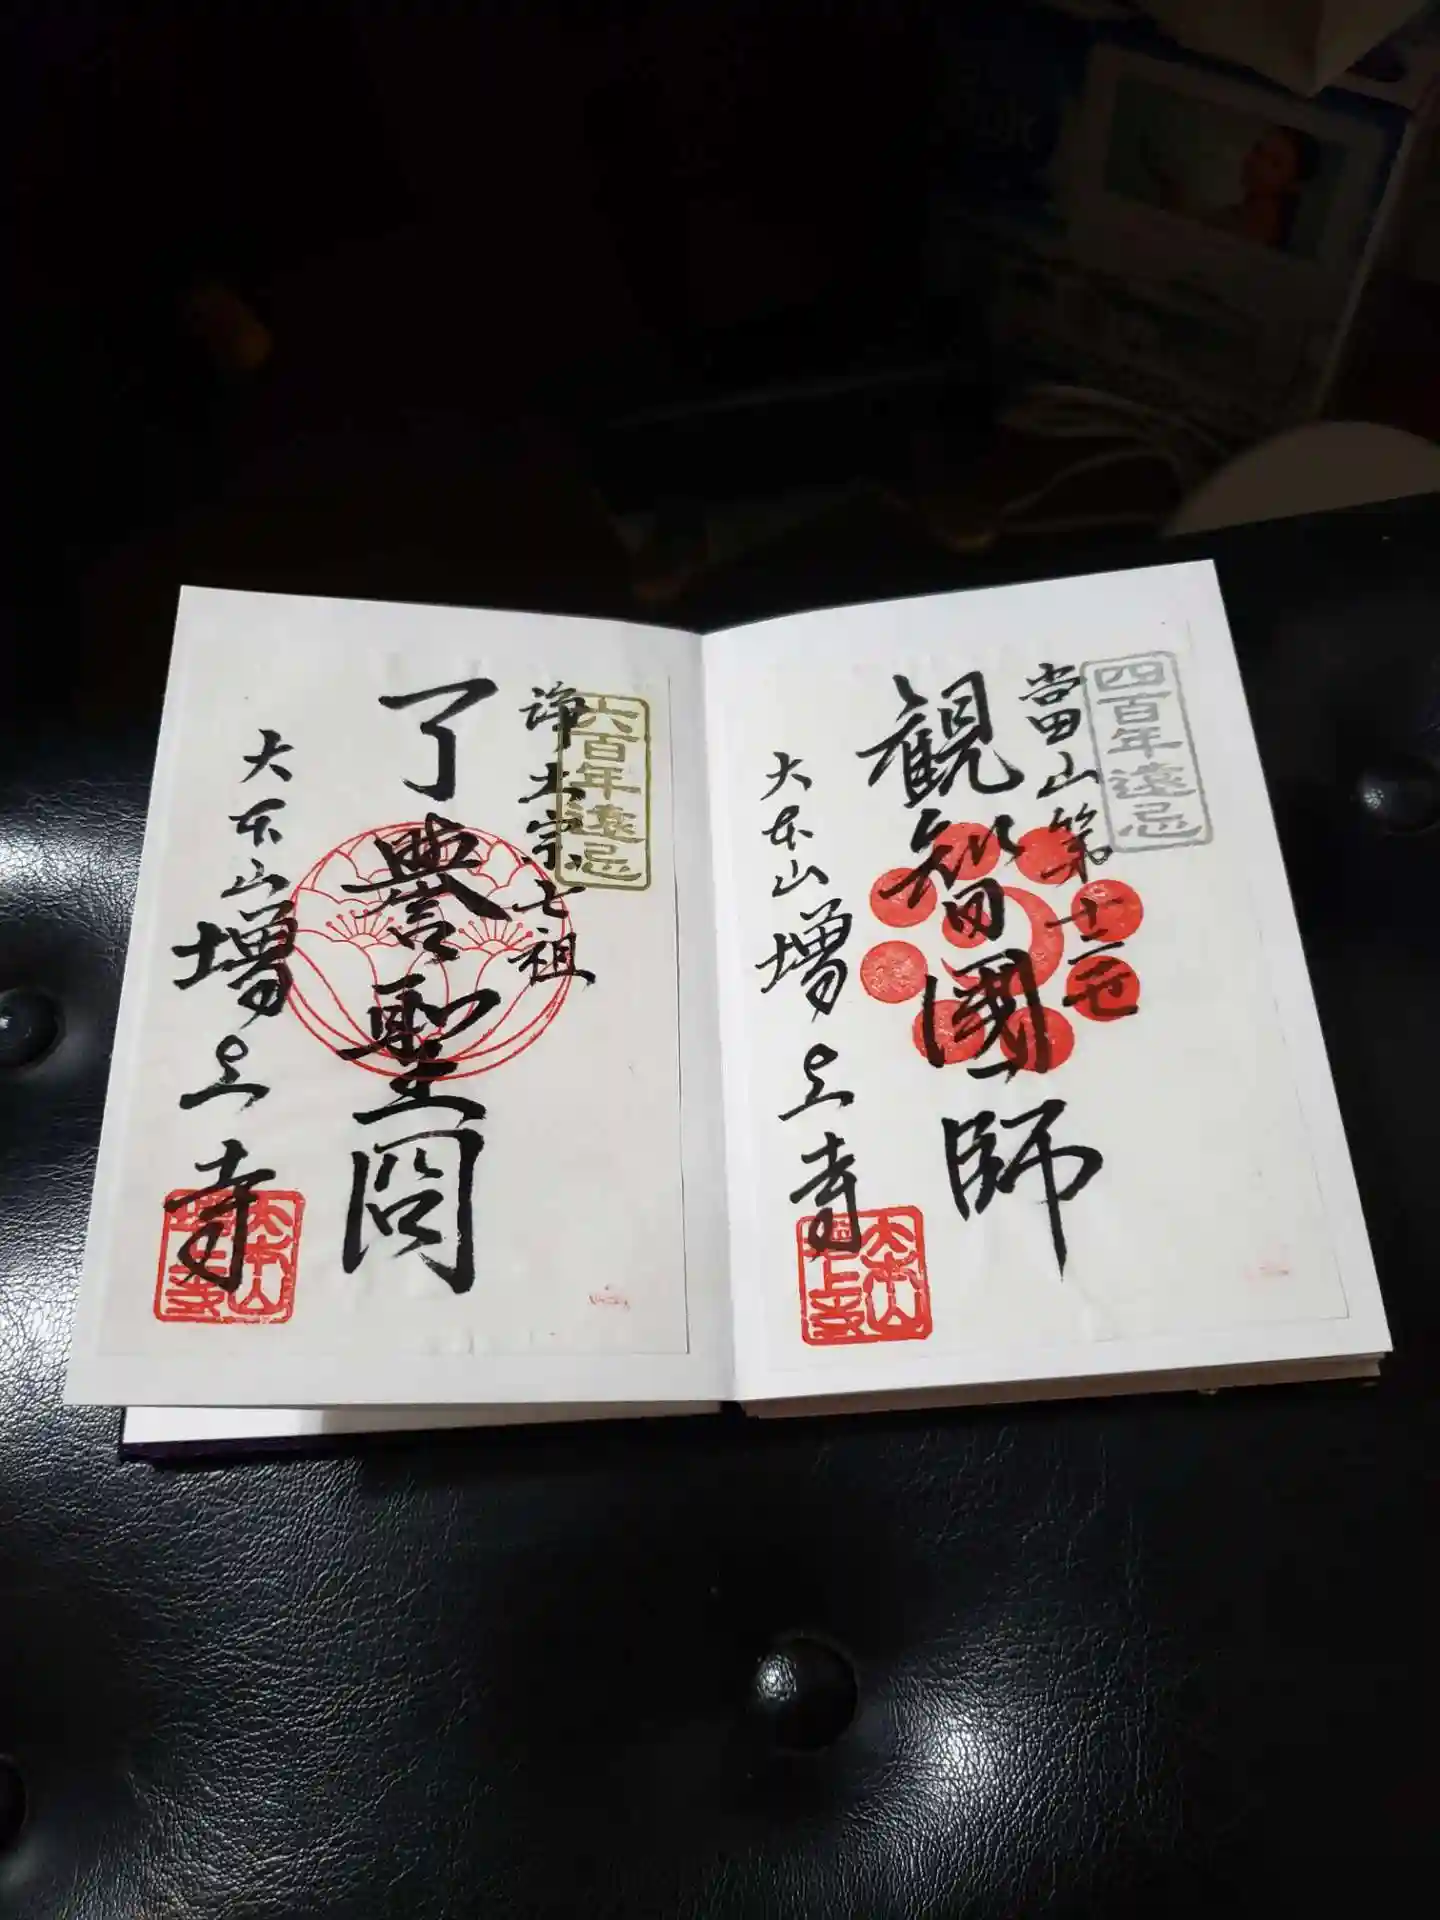 四百年遠忌
當山第十二世
観智國師
大本山増上寺
大本山
増上寺
六百年遠忌
浄土宗七祖
了譽聖冏
大本山増上寺
大本山
増上寺